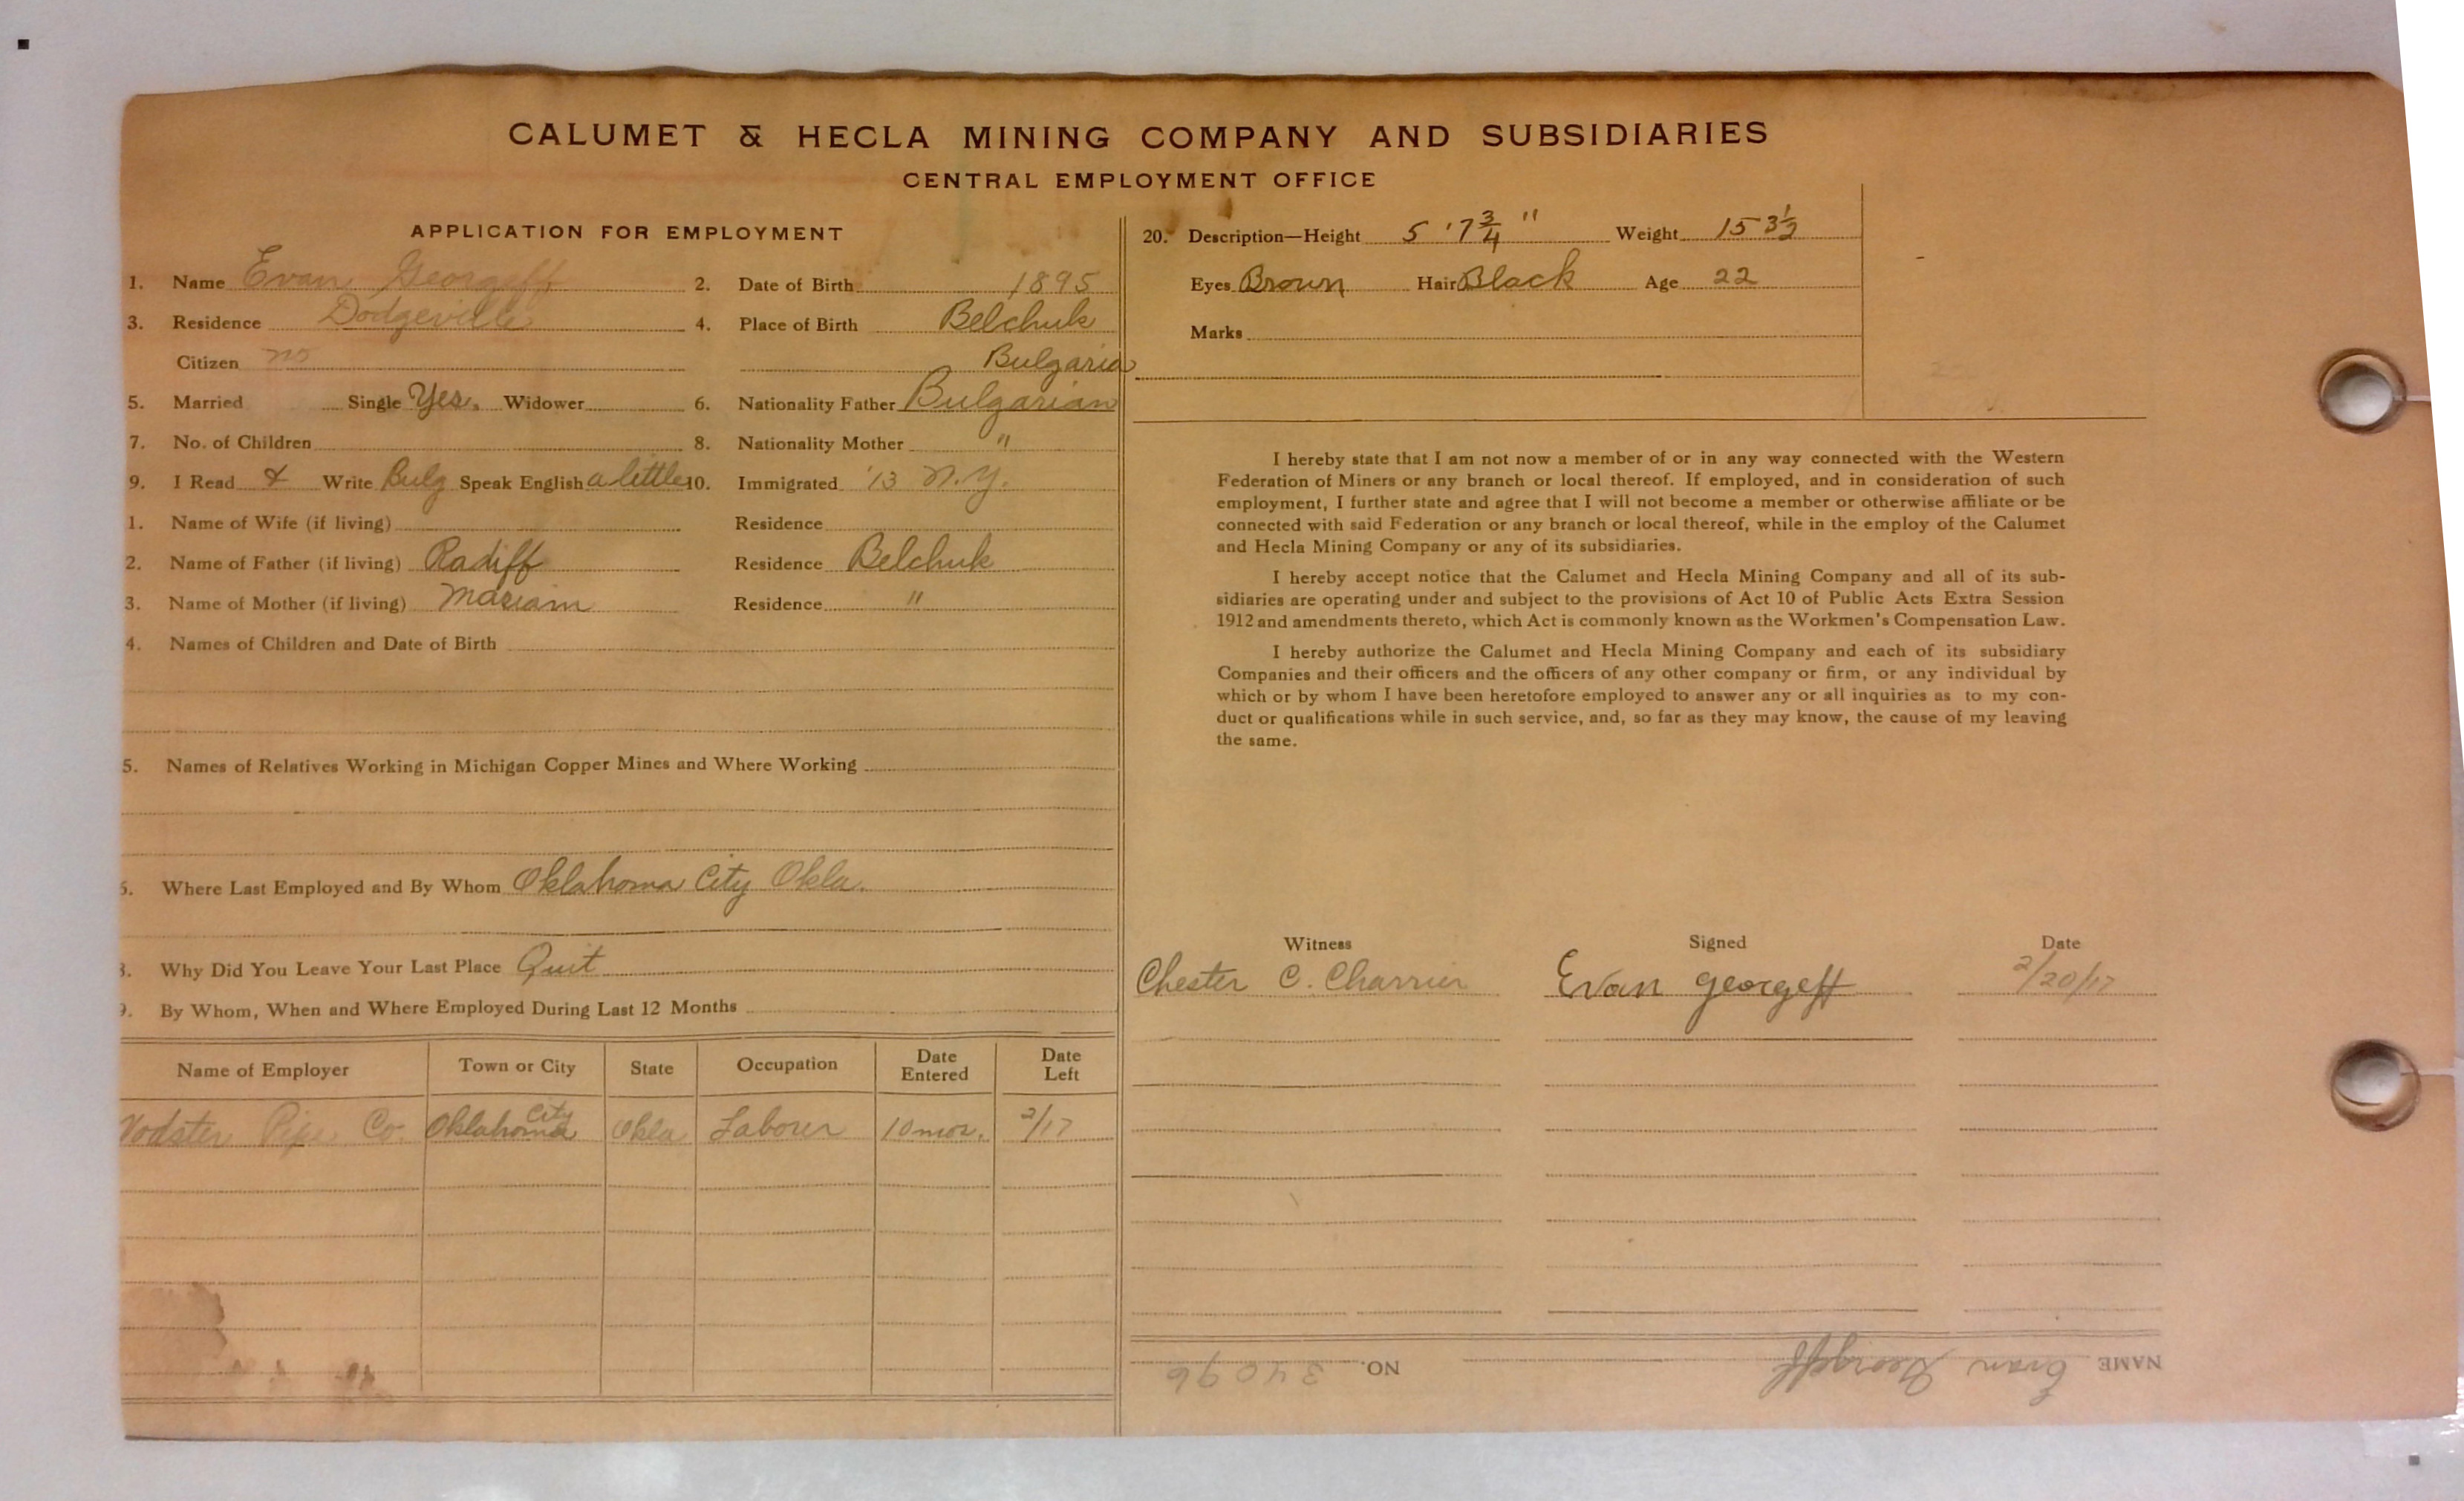 CALUMET & HECLA MINING COMPANY AND SUBSIDIARIES
CENTRAL EMPLOYMENT OFFICE
APPLICATION FOR EMPLOYMENT
1. Name Evan Georgeff 2. Date of Birth 1895
3. Residence Dodgeville 4. Place of Birth Belchuk
Citizen no Bulgaria
5. Married Single Yes. Widower 6. Nationality Father Bulgarian
7. No. of Children 8. Nationality Mother "
9. I Read & Write Bulg Speak English a little 10. Immigrated '13 N.Y.
1. Name of Wife (if living) Residence
2. Name of Father (if living) Radiff Residence Belchuk
3. Name of Mother (if living) Mariam Residence "
4. Names of Children and Date of Birth
5. Names of Relatives Working in Michigan Copper Mines and Where Working
6. Where Last Employed and By Whom Oklahoma City Okla.
8. Why Did You Leave Your Last Place Quit
9. By Whom, When and Where Employed During Last 12 Months
Name of Employer Town or City State Occupation Date Entered Date Left
Pipe Co. Oklahoma City Okla Labourer 10 mos. 2/17
20. Description—Height 5'7 3/4" Weight 153 1/2
Eyes Brown Hair Black Age 22
Marks
I hereby state that I am not now a member of or in any way connected with the Western
Federation of Miners or any branch or local thereof. If employed, and in consideration of such
employment, I further state and agree that I will not become a member or otherwise affiliate or be
connected with said Federation or any branch or local thereof, while in the employ of the Calumet
and Hecla Mining Company or any of its subsidiaries.
I hereby accept notice that the Calumet and Hecla Mining Company and all of its sub-
sidiaries are operating under and subject to the provisions of Act 10 of Public Acts Extra Session
1912 and amendments thereto, which Act is commonly known as the Workmen's Compensation Law.
I hereby authorize the Calumet and Hecla Mining Company and each of its subsidiary
Companies and their officers and the officers of any other company or firm, or any individual by
which or by whom I have been heretofore employed to answer any or all inquiries as to my con-
duct or qualifications while in such service, and, so far as they may know, the cause of my leaving
the same.
Witness Signed Date
Chester C. Charrier Evan georgeff 2/20/17
NAME Evan Georgeff NO. 34096